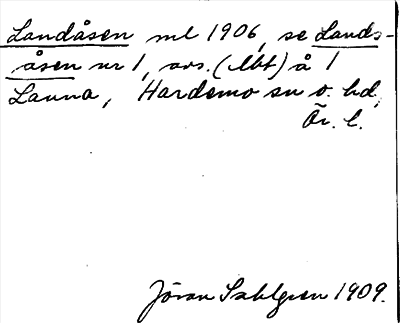 Landåsen ml 1906, se Lands-
åsen nr 1, avs. (lbt) å 1
Lanna, Hardemo sn o. hd,
Ör. l.
Jöran Sahlgren 1909.